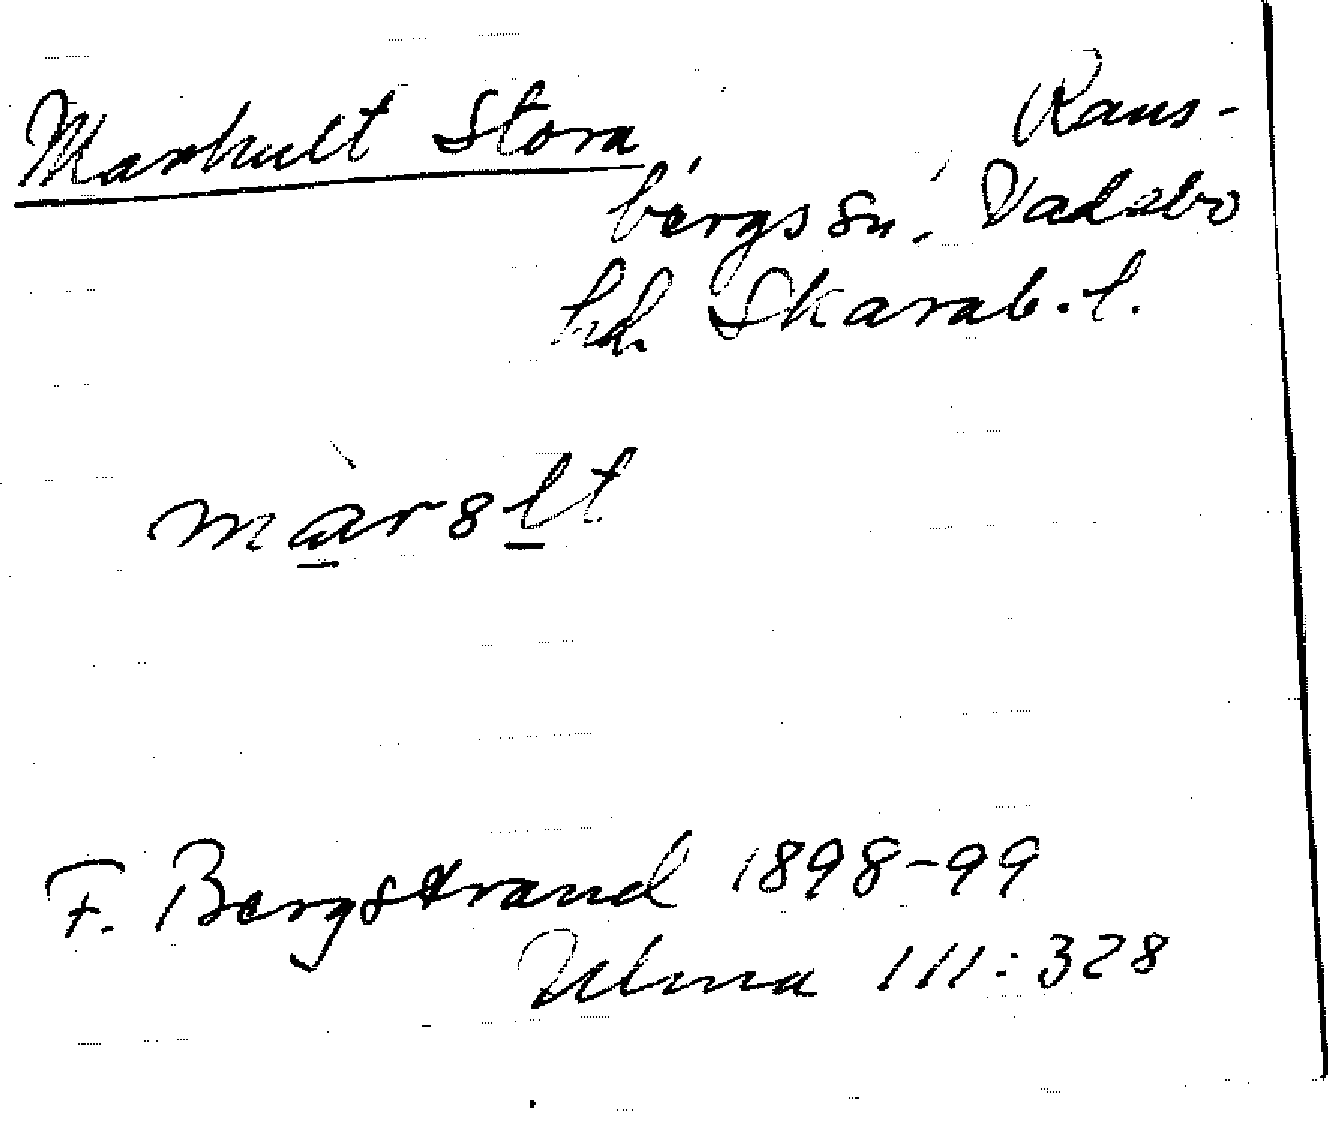 Marhult Stora Rans-
bergs sn, Vadsbo
hd. Skarab. l.
màrslt
F. Bergstrand 1898-99
Ulma 111:328